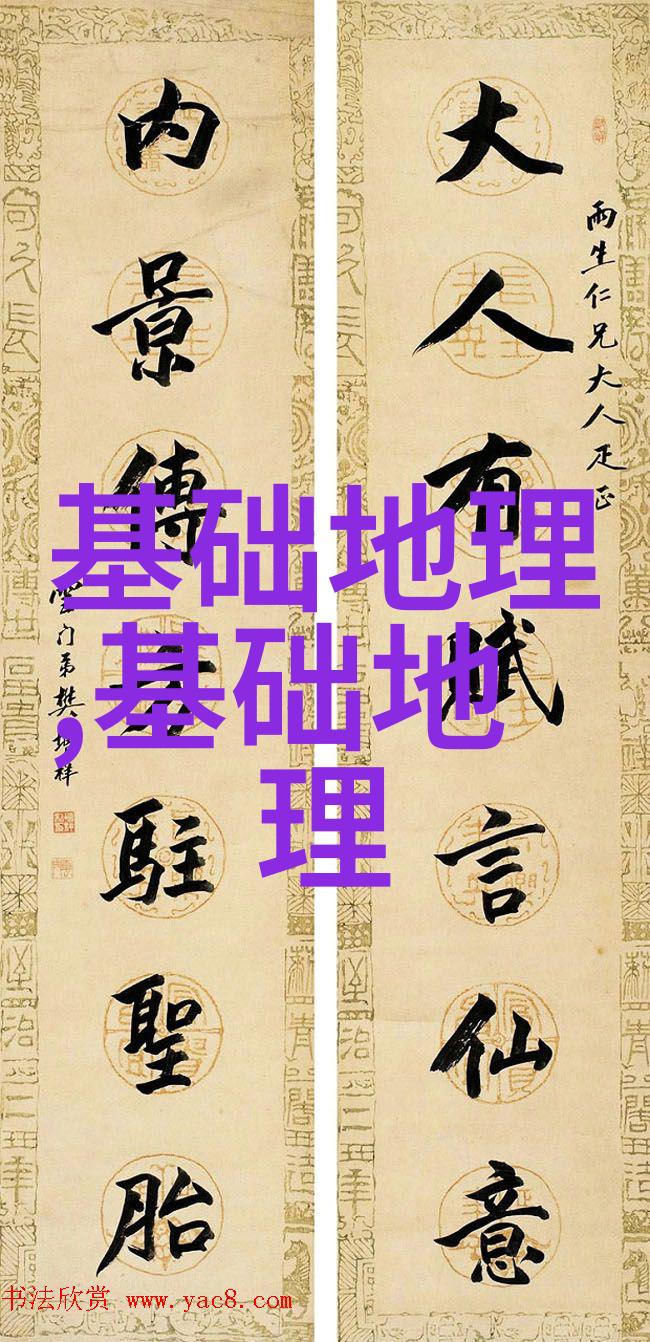 雨生仁兄大人疋正
大人有賦言仙意
内景傳駐聖胎
雲门弟樊增祥
基础地理
,基础地
理
书法欣赏 www.yac8.com